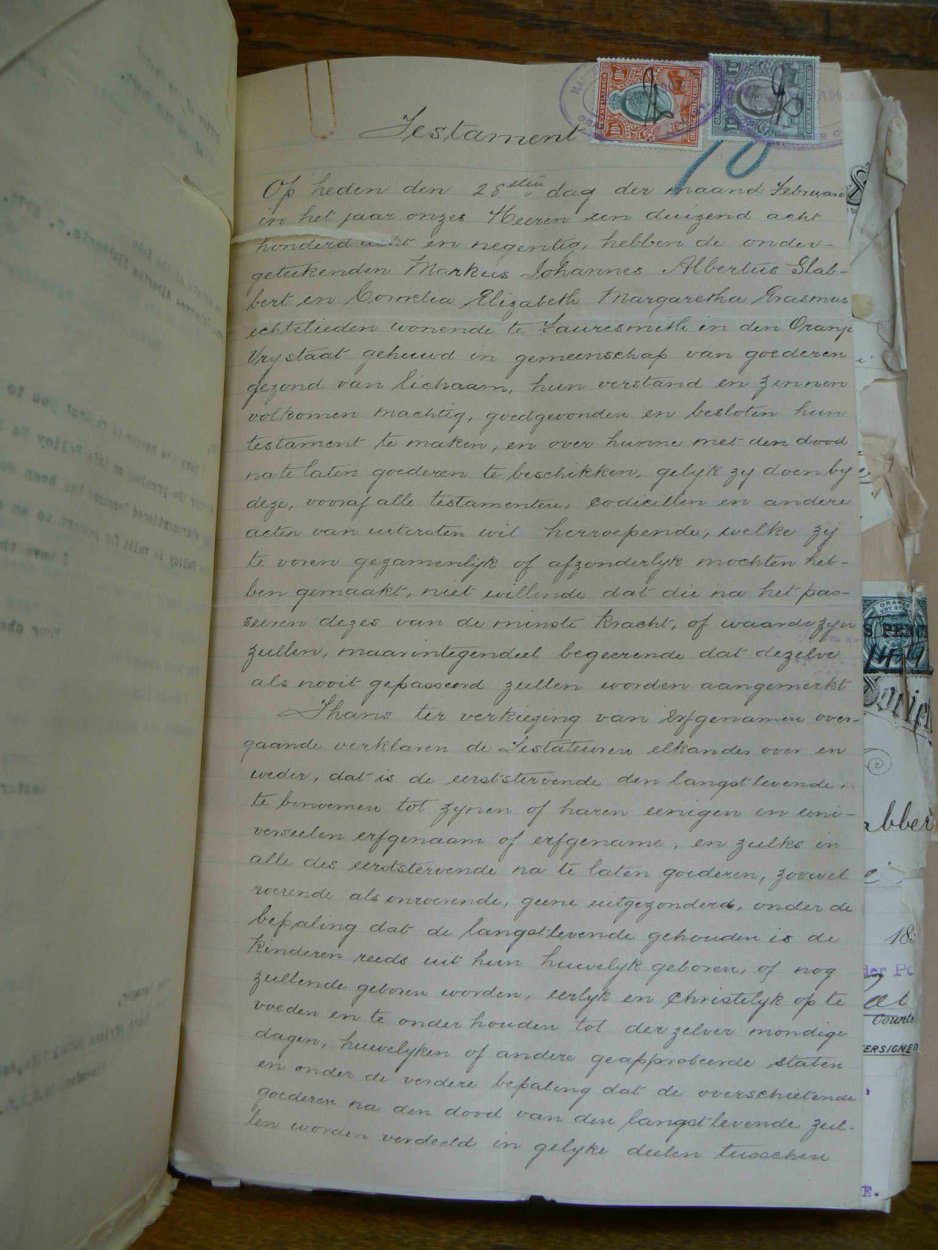 Testament
10
Op heden den 28sten dag der maand Februari
in het jaar onzes Heeren een duizend acht
honderd acht en negentig, hebben de onder-
geteekenden Markus Johannes Albertus Slab-
bert en Cornelia Elizabeth Margaretha Erasmus
echtelieden wonende te Fauresmith in den Oranje
Vrystaat gehuwd in gemeenschap van goederen
gezond van lichaam, hun verstand en zinnen
volkomen machtig, goedgevonden en besloten hun
testament te maken, en over hunne met den dood
na te laten goederen te beschikken, gelyk zy doen by
deze, vooraf alle testamenten, codicillen en andere
acten van uitersten wil herroepende, welke zy
te voren gezamenlyk of afzonderlyk mochten heb-
ben gemaakt, niet willende dat die na het pas-
seeren dezes van de minste kracht, of waarde zyn
zullen, maar integendeel begeerende dat dezelve
als nooit gepasseerd zullen worden aangemerkt
Thans ter verkiezing van Erfgenamen over-
gaande verklaren de Testateuren elkander over en
weder, dat is de eerststervende den langstlevende,
te benoemen tot zynen of haren eenigen en uni-
verseelen erfgenaam of erfgename, en zulks in
alle des eerststervende na te laten goederen, zoowel
roerende als onroerende, geene uitgezonderd, onder de
bepaling dat de langstlevende gehouden is de
kinderen reeds uit hun huwelyk geboren, of nog
zullende geboren worden, eerlyk en Christelyk op te
voeden en te onderhouden tot derzelver mondige
dagen, huwelyken of andere geapprobeerde staten
en onder de verdere bepaling dat de overschietende
goederen na den dood van den langstlevende zul-
len worden verdeeld in gelyke deelen tusschen